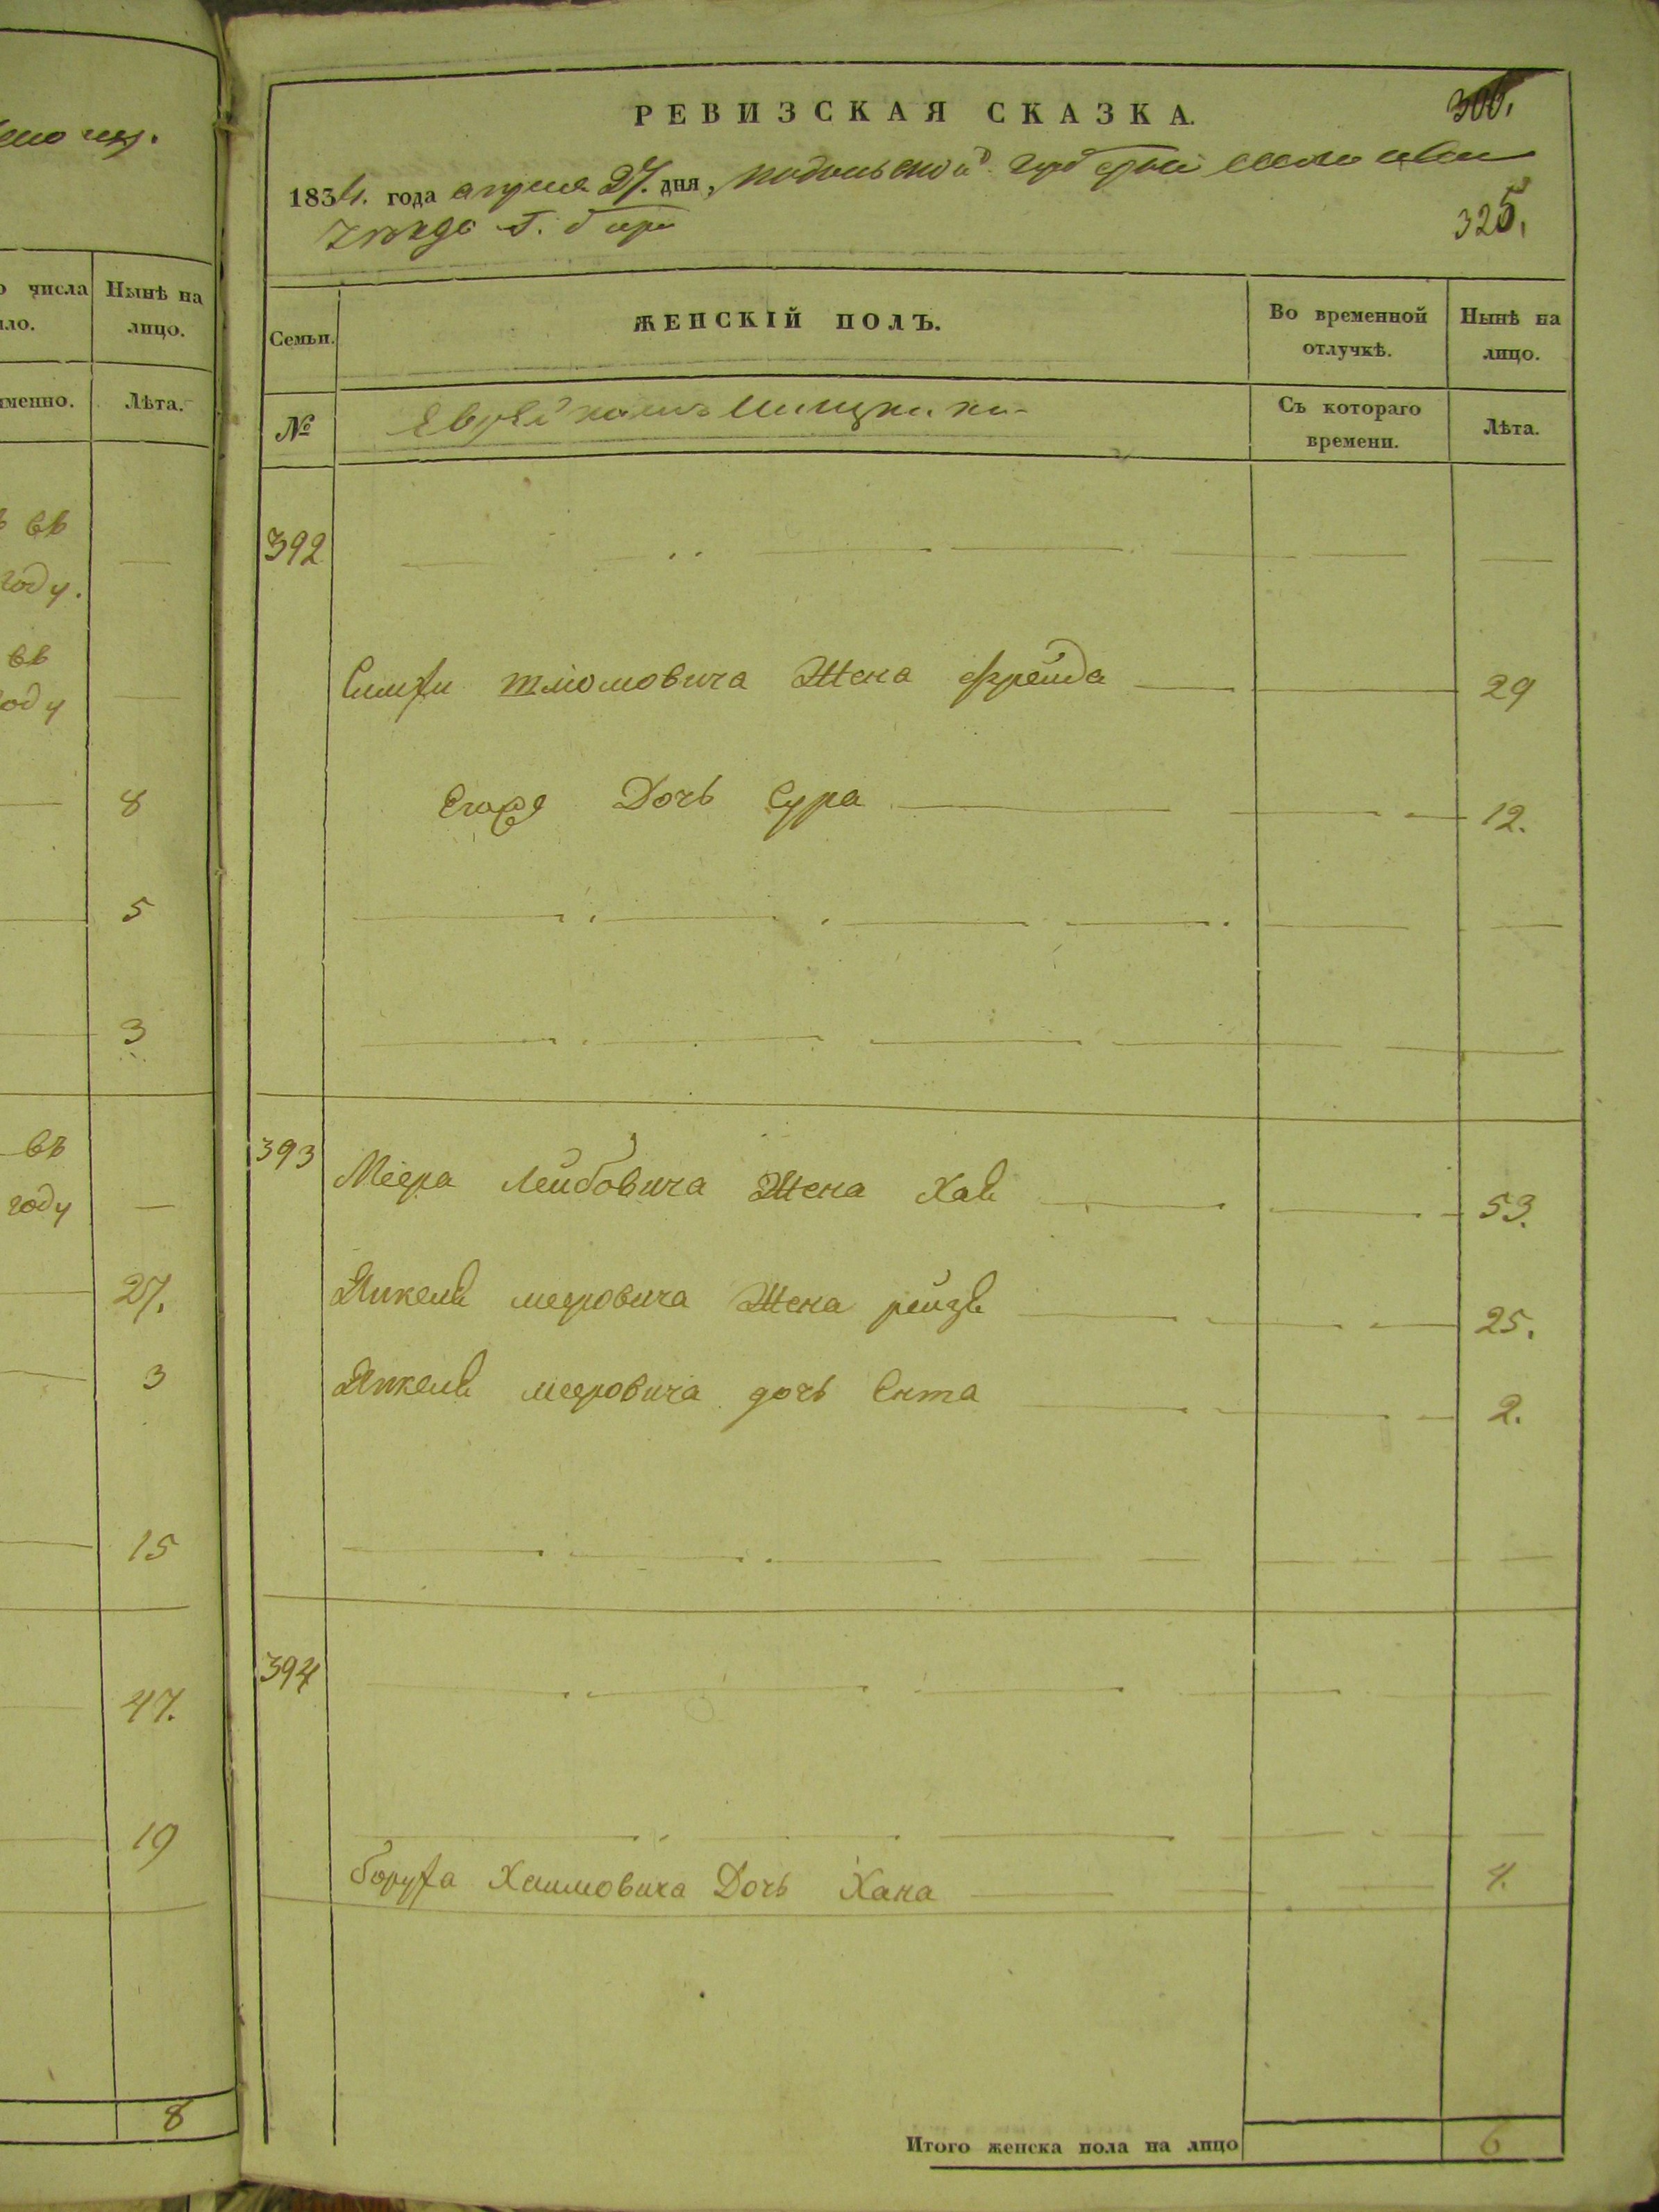 о числа
Нынѣ на
лицо.
именно.
Лѣта.
въ
году.
въ
году
8
5
3
въ
году
27.
3
15
47.
19
8
РЕВИЗСКАЯ СКАЗКА.
300.
1834. года апреля 27. дня, подольской губернии
325.
Семьи.
ЖЕНСКІЙ ПОЛЪ.
Во временной
отлучкѣ.
Нынѣ на
лицо.
№
Съ котораго
времени.
Лѣта.
392
Симхи Шлиомовича Жена Фрейда 29
Егоже Дочь Сура 12.
393 Меера Лейбовича Жена Хая 53.
Янкеля меэровича Жена рейзя 25.
Янкеля меэровича дочь Ента 2.
394
боруха Хаимовича Дочь Хана 4.
Итого женска пола на лицо 6